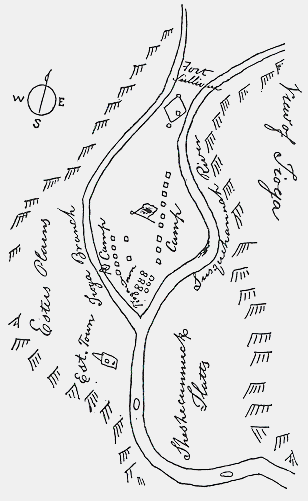 Fort
Sullivan
W E
S
View of Tioga
River
Susquehannah
Camp
Camp
Tioga Branch
Esters Plains
Est. Town
Sheshecunnuck
Flatts